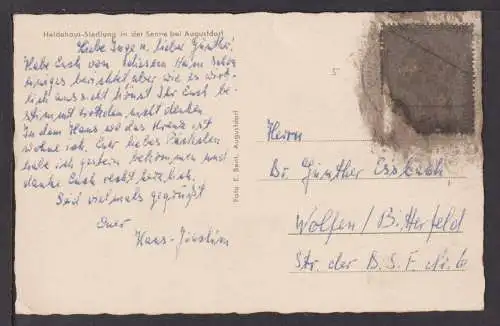 Heidehaus-Siedlung in der Senne bei Augustdorf
Liebe Inge u. lieber Günther!
Habe Euch von diesem Heim schon
einiges berichtet aber wie es wirk-
lich aussieht könnt Ihr Euch be-
stimmt trotzdem nicht denken
In dem Haus wo das Kreuz ist
wohne ich. Euer liebes Päckchen
habe ich gestern bekommen und
danke Euch recht herzlich.
Seid vielmals gegrüßt
Euer
Hans-Joachim
Foto E. Bent, Augustdorf
5
Herrn
Dr. Günther Essbach
Wolfen / B. Herfeld
Str. der B. S. F. Nr. 6